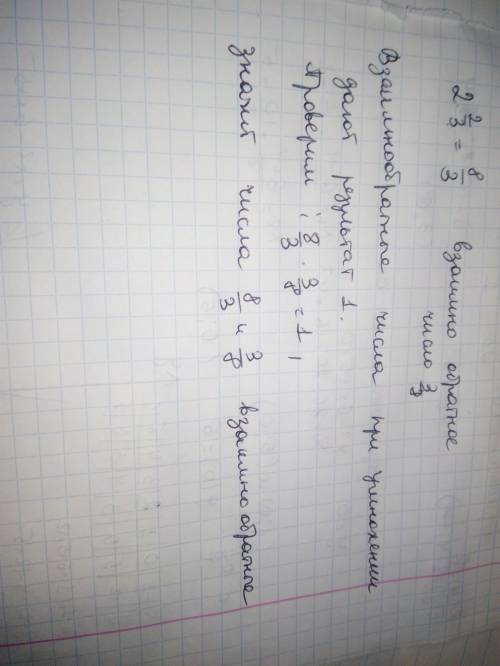 2 2/3 = 8/3 взаимно обратное
число 3/8
Взаимнообратные числа при умножении
дают результат 1.
Проверим: 8/3 · 3/8 = 1,
значит числа 8/3 и 3/8 взаимно обратные